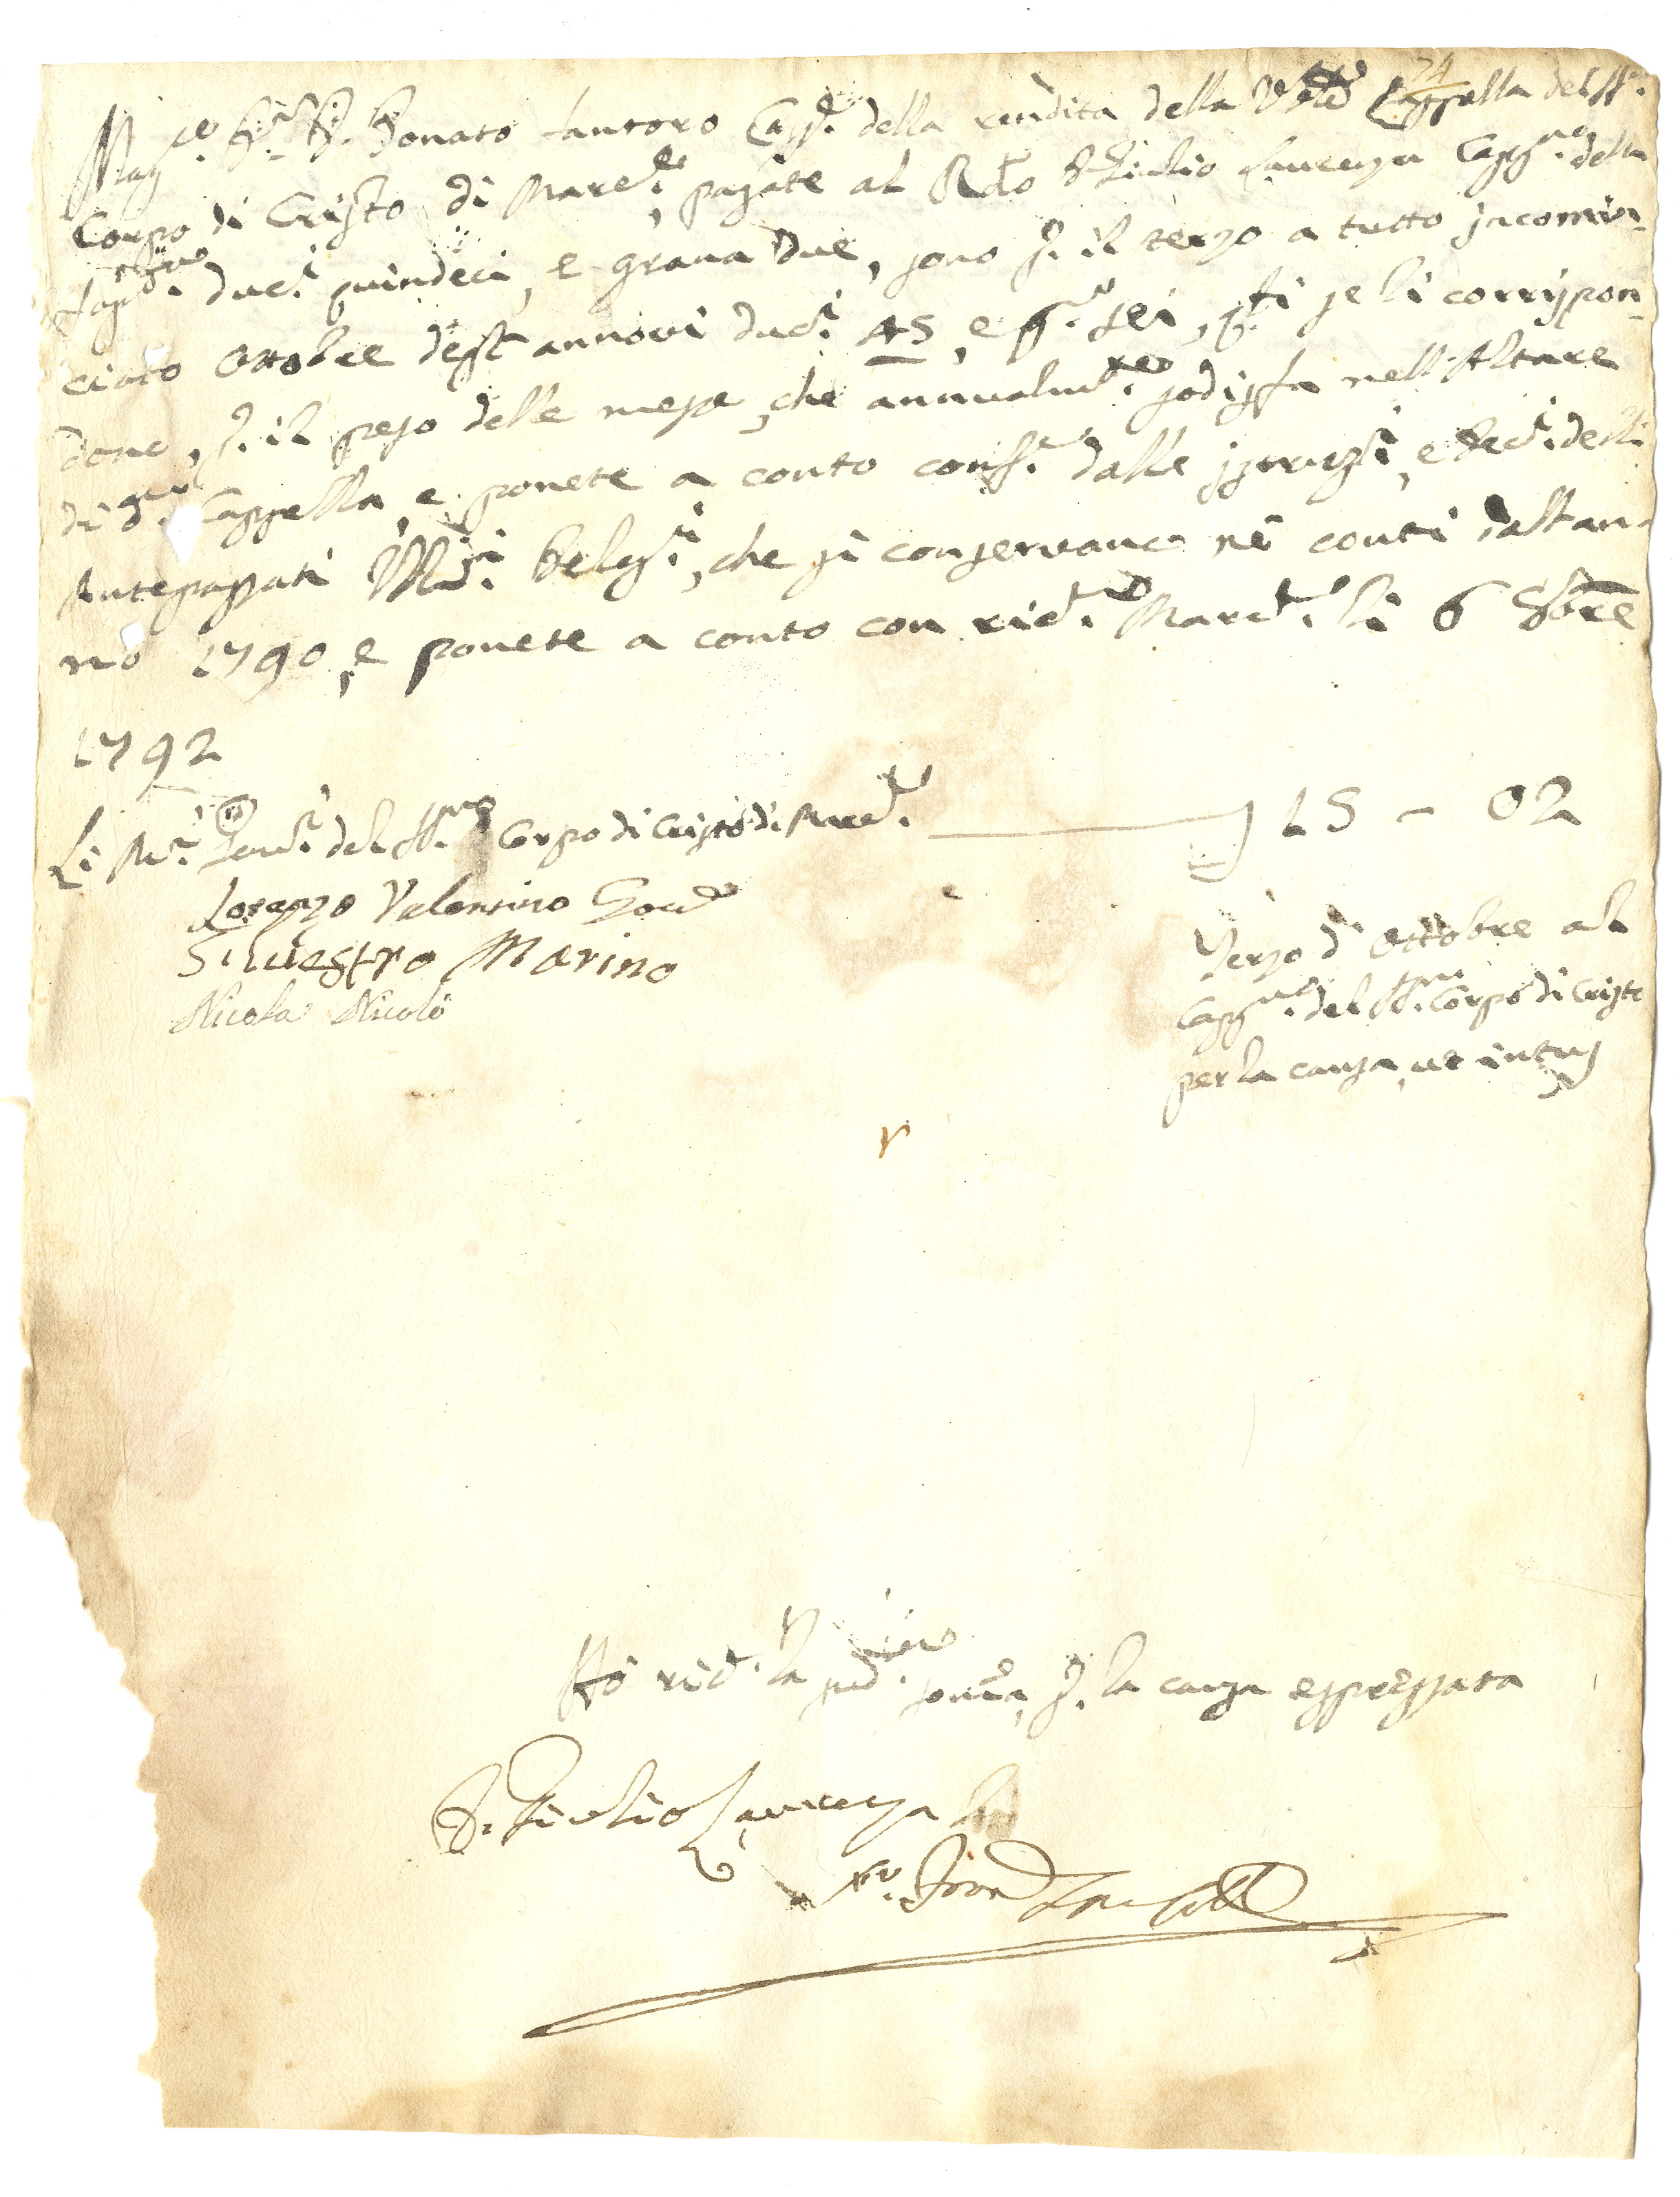 24
Mag.co Sig.r D. Donato Santoro Cass.re della rendita della V.le Cappella del SS.
Corpo di Cristo di Mared.e, pagate al Rdo D. Giulio Laurenza Capp.no della
stessa duc.i quindeci, e grana due, sono p. il terzo a tutto jncomin-
ciato Ottobre degl' annovi duc.i 45, e g.a sei, q.sti se li corrispon-
dono, p. il peso delle messe, che annualm.te sodisfa nell'Altare
di d.a Cappella, e ponete a conto conf.e dalle, e Dec.i delli
Antepassati Deleg.ti, che si conservano nè conti dall'an-
no 1790, e ponete a conto con ric.o Mared.e li 6 8bre
1792
Li M.ci del SS.mo Corpo di Cristo di Mared.e 15 - 02
Lorenzo Valentino
Silvestro Marino
Nicola Nicolò
Terzo d' Ottobre al
Capp.no del SS.mo Corpo di Cristo
per la causa, ut intus
Hò ric.o la sud.a somma, p. la causa espressata
D. Giulio Laurenza